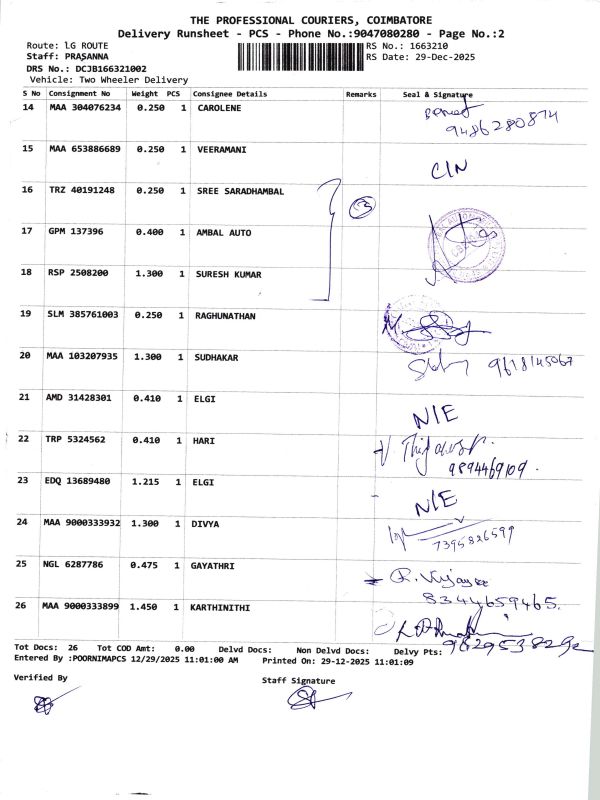 THE PROFESSIONAL COURIERS, COIMBATORE
Delivery Runsheet - PCS - Phone No.:9047080280 - Page No.:2
Route: LG ROUTE
Staff: PRASANNA
DRS No.: DCJB166321002
Vehicle: Two Wheeler Delivery
RS No.: 1663210
RS Date: 29-Dec-2025
S No Consignment No Weight PCS Consignee Details Remarks Seal & Signature
14 MAA 304076234 0.250 1 CAROLENE
9486280874
15 MAA 653886689 0.250 1 VEERAMANI
C/N
16 TRZ 40191248 0.250 1 SREE SARADHAMBAL
3
17 GPM 137396 0.400 1 AMBAL AUTO
18 RSP 2508200 1.300 1 SURESH KUMAR
19 SLM 385761003 0.250 1 RAGHUNATHAN
20 MAA 103207935 1.300 1 SUDHAKAR
9618145067
21 AMD 31428301 0.410 1 ELGI
N/E
22 TRP 5324562 0.410 1 HARI
9894469109.
23 EDQ 13689480 1.215 1 ELGI
N/E
24 MAA 9000333932 1.300 1 DIVYA
7395826599
25 NGL 6287786 0.475 1 GAYATHRI
8344659465.
26 MAA 9000333899 1.450 1 KARTHINITHI
Tot Docs: 26 Tot COD Amt: 0.00 Delvd Docs: Non Delvd Docs: Delvy Pts:
Entered By :POORNIMAPCS 12/29/2025 11:01:00 AM Printed On: 29-12-2025 11:01:09
Verified By
Staff Signature